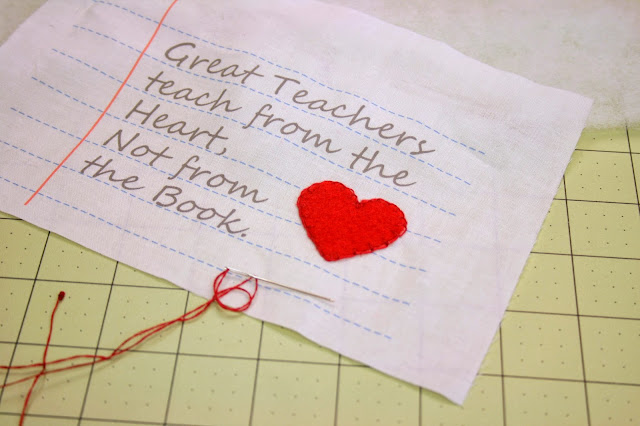 Great Teachers
teach from the
Heart,
Not from
the Book.